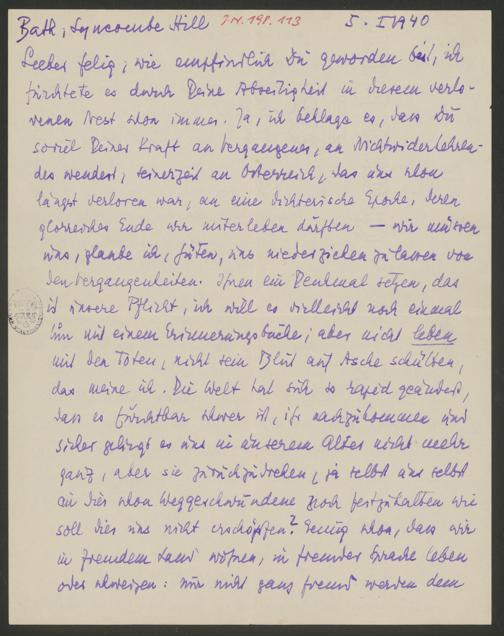 Bath, Lyncombe Hill I.N. 198.113 5. I 1940
Lieber Felix, wie empfindlich Du geworden bist, ich
fürchtete es durch Deine Abseitigkeit in diesem verlo-
renen Nest schon immer. Ja, ich beklage es, dass Du
soviel Deiner Kraft an Vergangenes, an Nichtwiederkehren-
des wendest, seinerzeit an Österreich, das uns schon
längst verloren war, an eine dichterische Epoche, deren
glorreiches Ende wir miterleben durften – wir müssen
uns, glaube ich, hüten, uns niederziehen zu lassen von
den Vergangenheiten. Ihnen ein Denkmal setzen, das
ist unsere Pflicht, ich will es vielleicht noch einmal
tun mit einem Erinnerungsbuche; aber nicht leben
mit den Toten, nicht sein Blut auf Asche schütten,
das meine ich. Die Welt hat sich so rapid geändert,
dass es furchtbar schwer ist, ihr nachzukommen und
sicher gelingt es uns in unserem Alter nicht mehr
ganz, aber sie zurückzudrehen, ja selbst uns selbst
an dies schon Weggeschwundene noch festzuhalten wie
soll dies uns nicht erschöpfen? Genug schon, dass wir
in fremdem Land wohnen, in fremder Sprache leben
oder schweigen: nur nicht ganz fremd werden dem